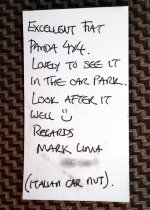 EXCELLENT FIAT
PANDA 4x4.
LOVELY TO SEE IT
IN THE CAR PARK.
LOOK AFTER IT
WELL
REGARDS
MARK LIMA
(ITALIAN CAR NUT).